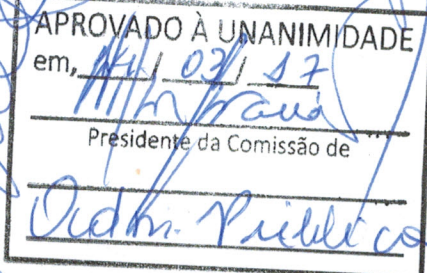 APROVADO À UNANIMIDADE
em, 14 / 03 / 17
Presidente da Comissão de
Ordem Pública